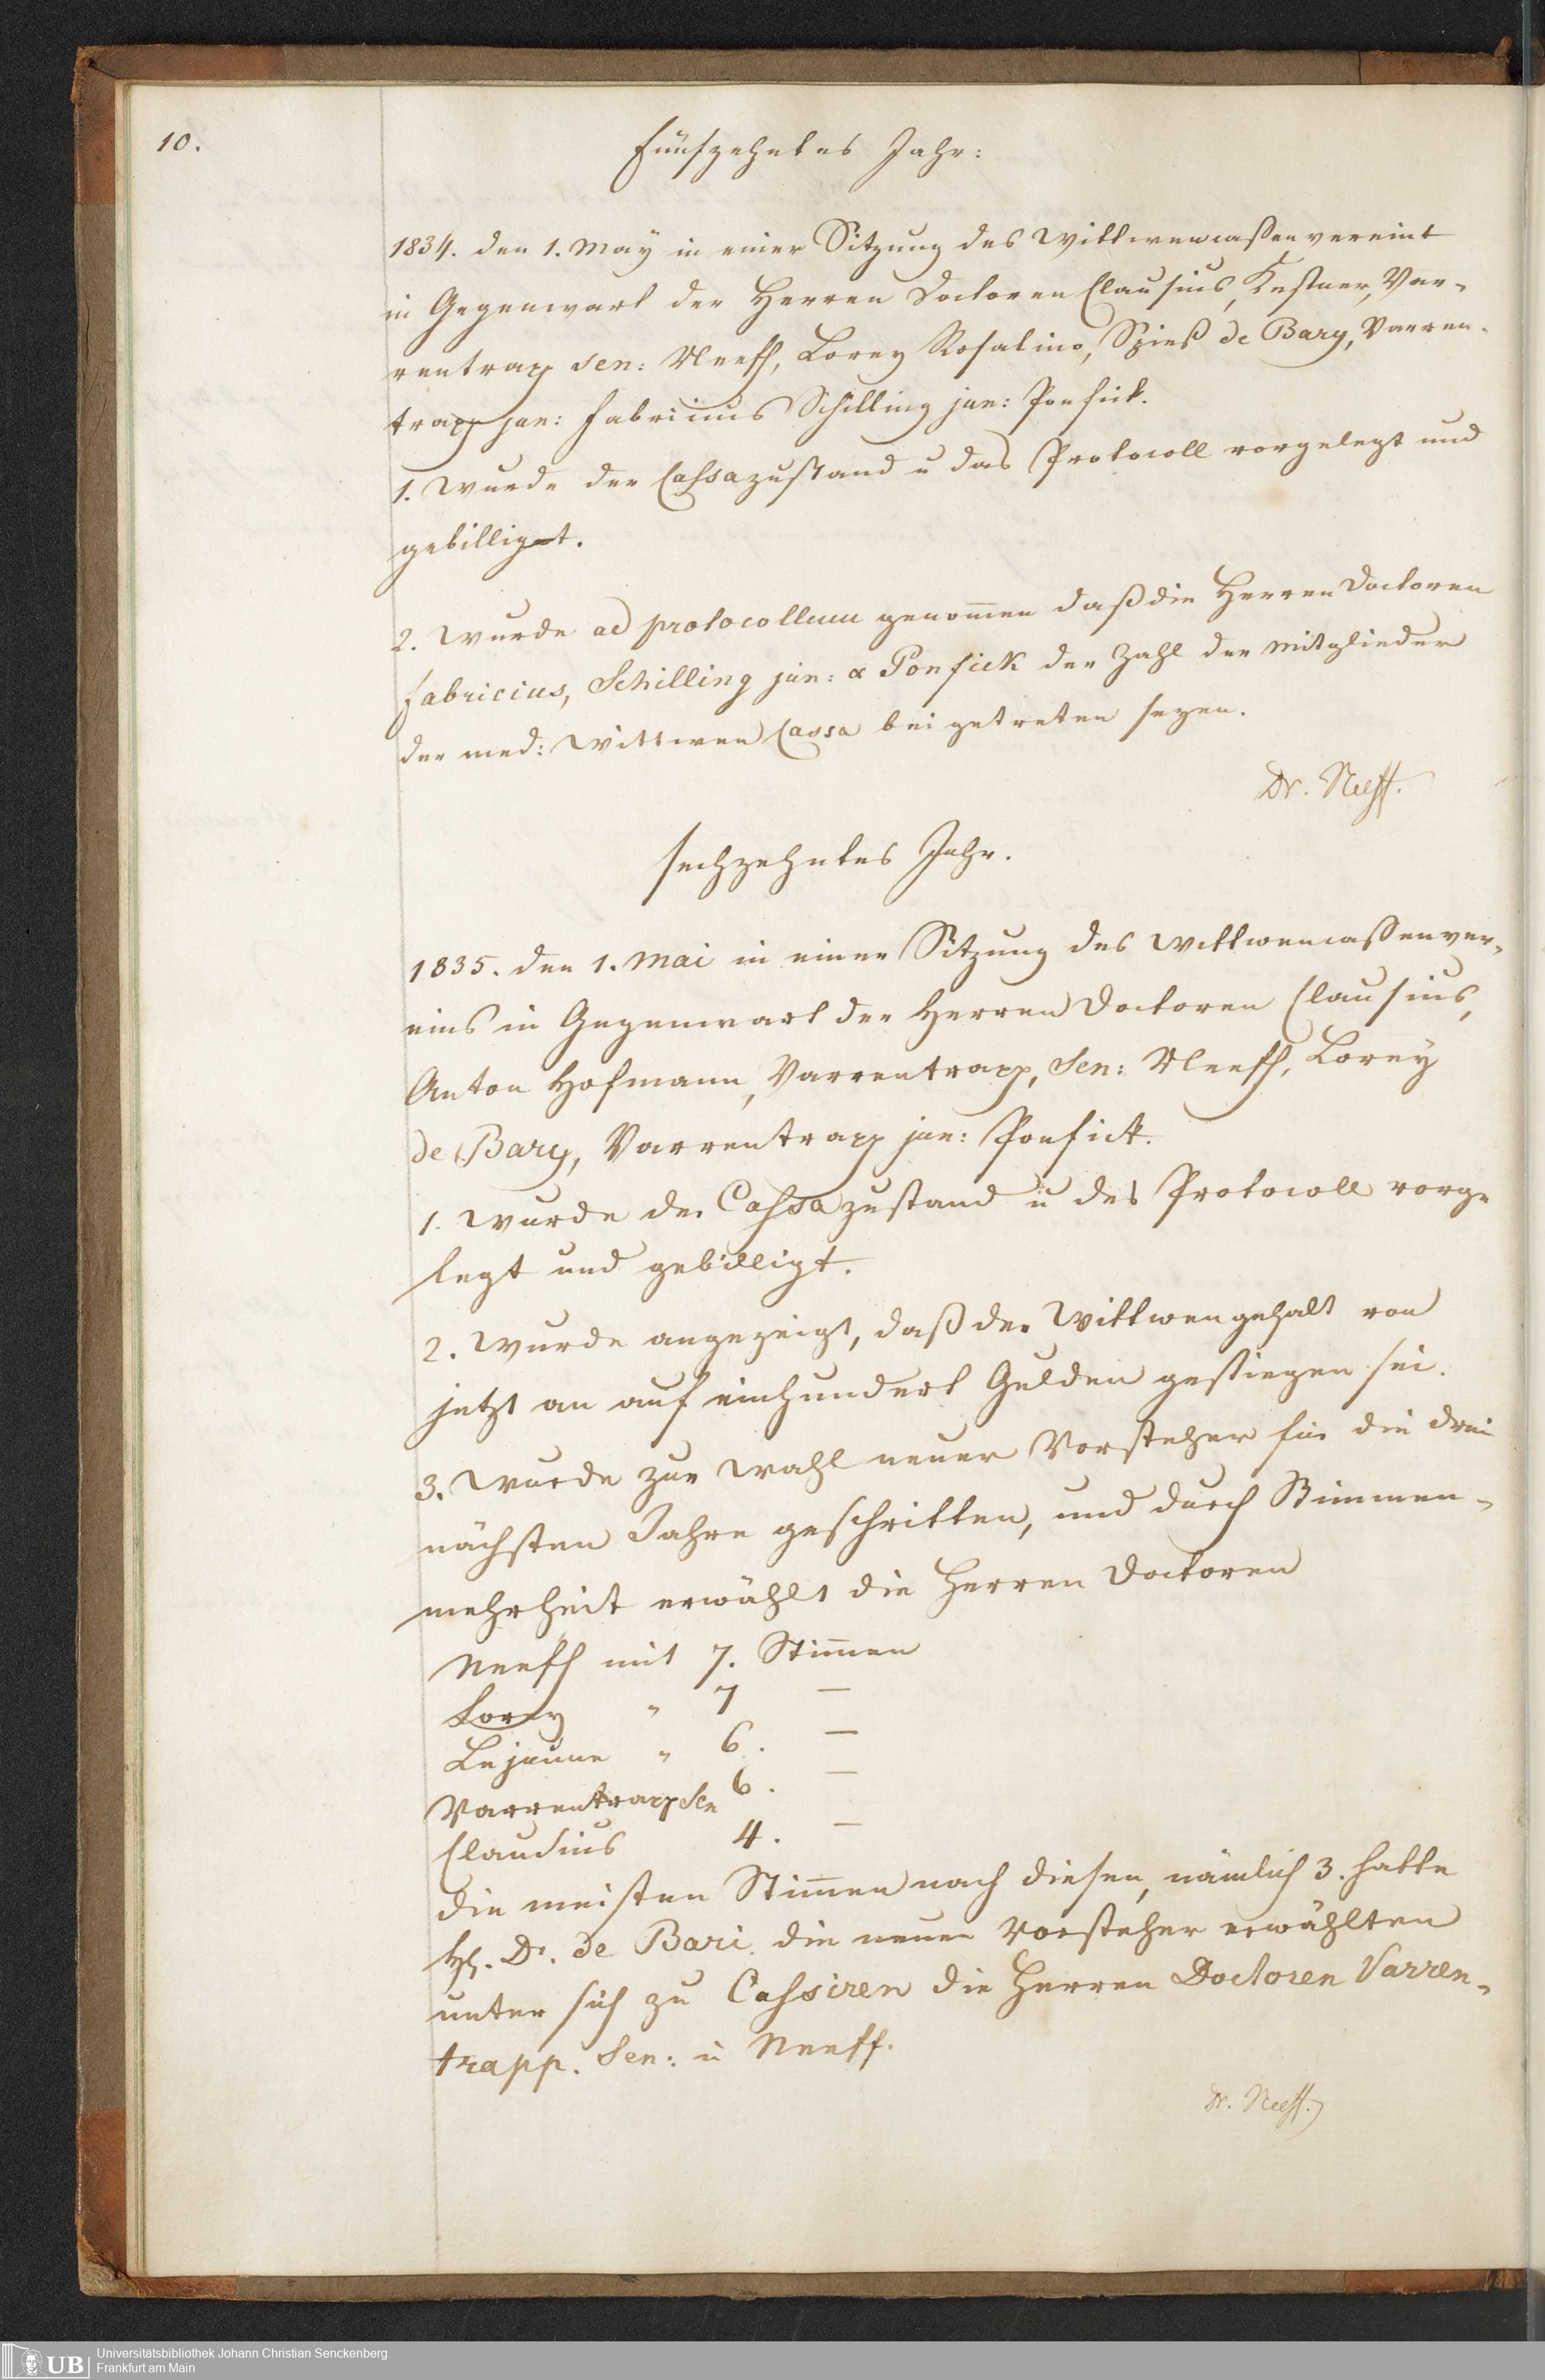 10.
Fünfzehntes Jahr:
1834. den 1. May in einer Sitzung des Wittwencassenvereins
in Gegenwart der Herren Doctoren Clausius, Kestner, Var-
rentrapp sen: Neeff, Lorey Rosalino, Spieß de Bary, Varren-
trapp jun: Fabricius Schilling jun: Ponfick.
1. Wurde der Cassazustand u das Protocoll vorgelegt und
gebilligt.
2. Wurde ad protocollum genom̄en daß die Herren Doctoren
Fabricius, Schilling jun: & Ponfick der Zahl der Mitglieder
der med: Wittwen Cassa bei getreten seyen.
Dr. Neeff.
Sechzehntes Jahr.
1835. den 1. Mai in einer Sitzung des Wittwencassenver-
eins in Gegenwart der Herren Doctoren Clausius,
Anton Hofmann, Varrentrapp, Sen: Neeff, Lorey
de Bary, Varrentrapp jun: Ponfick.
1. Wurde der Cassazustand u das Protocoll vorge
legt und gebilligt.
2. Wurde angezeigt, daß der Wittwengehalt von
jetzt an auf einhundert Gulden gestiegen sei.
3. Wurde zur Wahl neuer Vorsteher für die drei
nächsten Jahre geschritten, und durch Stimmen-
mehrheit erwählt die Herren Doctoren
Neeff mit 7. Stim̄en
Lorey " 7 —
Lejeune " 6. —
Varrentrapp Sen 6. —
Claudius 4. —
die meisten Stim̄en nach diesen, nämlich 3. hatte
H. Dr. de Bari. die neuen Vorsteher erwählten
unter sich zu Cassiren die Herren Doctoren Varren-
trapp. Sen: u Neeff.
Dr. Neeff.
UB Universitätsbibliothek Johann Christian Senckenberg
Frankfurt am Main